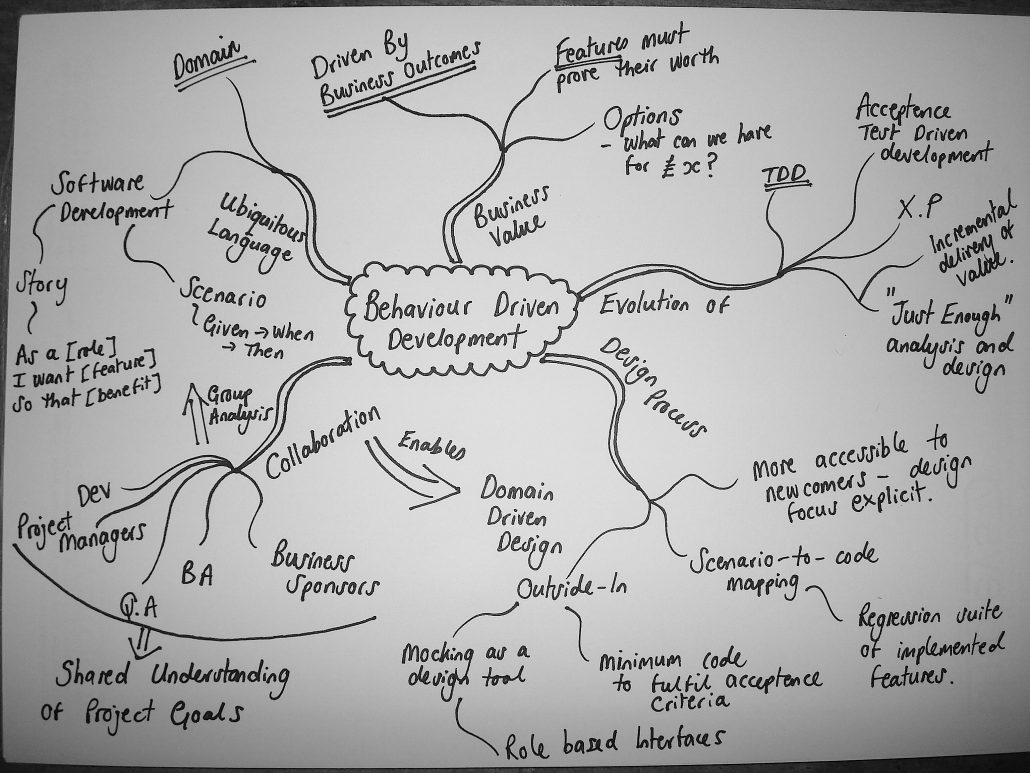 Domain
Driven By
Business Outcomes
Features must
prove their worth
Options
- what can we have
for £ x?
Business
Value
Acceptance
Test Driven
development
TDD
X.P
Incremental
delivery of
value.
"Just Enough"
analysis and
design
Evolution of
Software
Development
Ubiquitous
Language
Story
As a [role]
I want [feature]
so that [benefit]
Scenario
Given → When
→ Then
Behaviour Driven
Development
Group
Analysis
Collaboration
Enables
Domain
Driven
Design
Dev
Project
Managers
Q.A
BA
Business
Sponsors
Shared Understanding
of Project Goals
Design Process
More accessible to
newcomers - design
focus explicit.
Scenario-to-code
mapping
Regression suite
of implemented
features.
Outside-In
Mocking as a
design tool
Role based Interfaces
minimum code
to fulfil acceptance
criteria